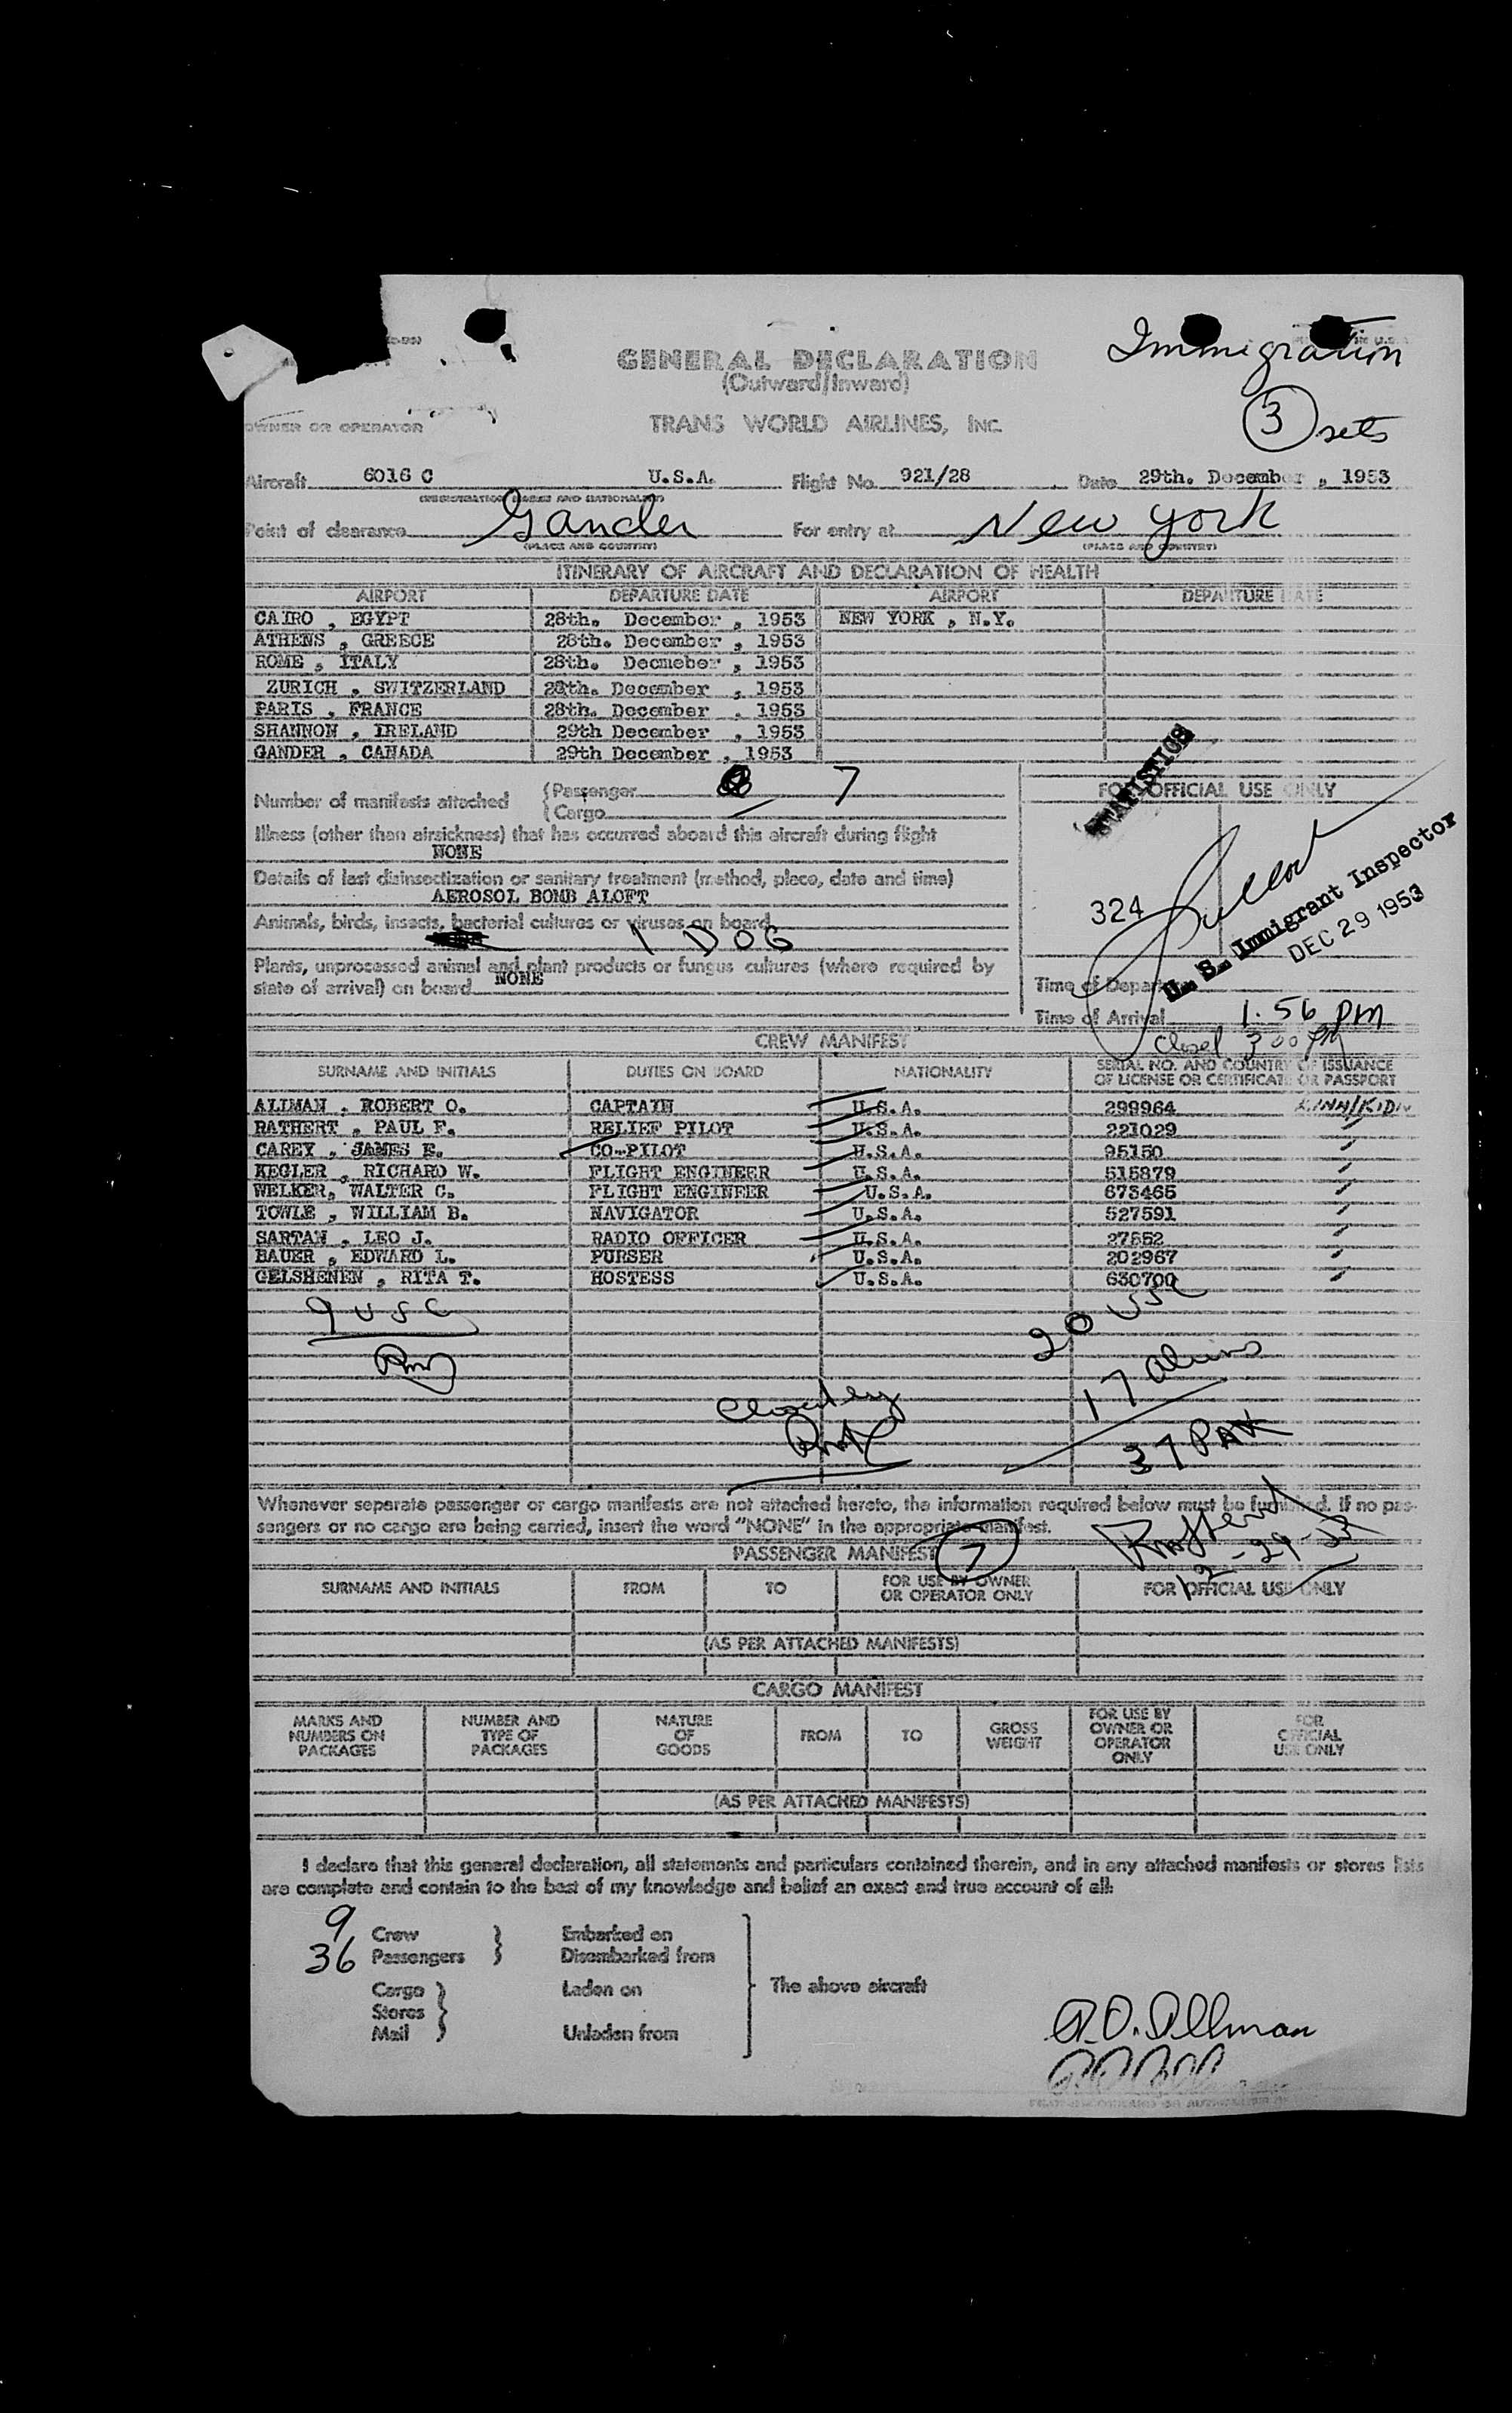 Immigration
GENERAL DECLARATION
(Outward/Inward)
3 sets
OWNER OR OPERATOR
TRANS WORLD AIRLINES, INC.
Aircraft 6016 C U.S.A. Flight No. 921/28 Date 29th. December , 1953
(REGISTRATION MARKS AND NATIONALITY)
Point of clearance Gander For entry at New York
(PLACE AND COUNTRY) (PLACE AND COUNTRY)
ITINERARY OF AIRCRAFT AND DECLARATION OF HEALTH
AIRPORT DEPARTURE DATE AIRPORT DEPARTURE DATE
CAIRO , EGYPT 28th. December , 1953 NEW YORK , N.Y.
ATHENS , GREECE 28th. December , 1953
ROME , ITALY 28th. Decmeber , 1953
ZURICH , SWITZERLAND 28th. December , 1953
PARIS , FRANCE 28th. December , 1953
SHANNON , IRELAND 29th December , 1953
GANDER , CANADA 29th December , 1953
STATISTICS
Number of manifests attached { Passenger 7
{ Cargo
FOR OFFICIAL USE ONLY
Illness (other than airsickness) that has occurred aboard this aircraft during flight
NONE
Details of last disinsectization or sanitary treatment (method, place, date and time)
AEROSOL BOMB ALOFT
324
U. S. Immigrant Inspector
DEC 29 1953
Animals, birds, insects, bacterial cultures or viruses on board
1 DOG
Plants, unprocessed animal and plant products or fungus cultures (where required by
state of arrival) on board NONE
Time of Departure
Time of Arrival 1.56 PM
Closed 3 00 PM
CREW MANIFEST
SURNAME AND INITIALS DUTIES ON BOARD NATIONALITY SERIAL NO. AND COUNTRY OF ISSUANCE
OF LICENSE OR CERTIFICATE OR PASSPORT
ALLMAN , ROBERT O. CAPTAIN U.S.A. 299964
RATHERT , PAUL F. RELIEF PILOT U.S.A. 221029
CAREY , JAMES E. CO-PILOT U.S.A. 95150
KEGLER , RICHARD W. FLIGHT ENGINEER U.S.A. 515879
WELKER, WALTER C. FLIGHT ENGINEER U.S.A. 673465
TOWLE , WILLIAM B. NAVIGATOR U.S.A. 527591
SARTAN , LEO J. RADIO OFFICER U.S.A. 27552
BAUER , EDWARD L. PURSER U.S.A. 202967
GELSHENEN , RITA T. HOSTESS U.S.A. 630700
9 USC
20 USC
17 Aliens
37 PAX
Whenever separate passenger or cargo manifests are not attached hereto, the information required below must be furnished. If no pas-
sengers or no cargo are being carried, insert the word "NONE" in the appropriate manifest.
PASSENGER MANIFEST 7
12-29-53
SURNAME AND INITIALS FROM TO FOR USE BY OWNER
OR OPERATOR ONLY FOR OFFICIAL USE ONLY
(AS PER ATTACHED MANIFESTS)
CARGO MANIFEST
MARKS AND
NUMBERS ON
PACKAGES NUMBER AND
TYPE OF
PACKAGES NATURE
OF
GOODS FROM TO GROSS
WEIGHT FOR USE BY
OWNER OR
OPERATOR
ONLY FOR
OFFICIAL
USE ONLY
(AS PER ATTACHED MANIFESTS)
I declare that this general declaration, all statements and particulars contained therein, and in any attached manifests or stores lists
are complete and contain to the best of my knowledge and belief an exact and true account of all:
9 Crew } Embarked on
36 Passengers } Disembarked from
Cargo } Laden on The above aircraft
Stores
Mail } Unladen from
R.O. Allman